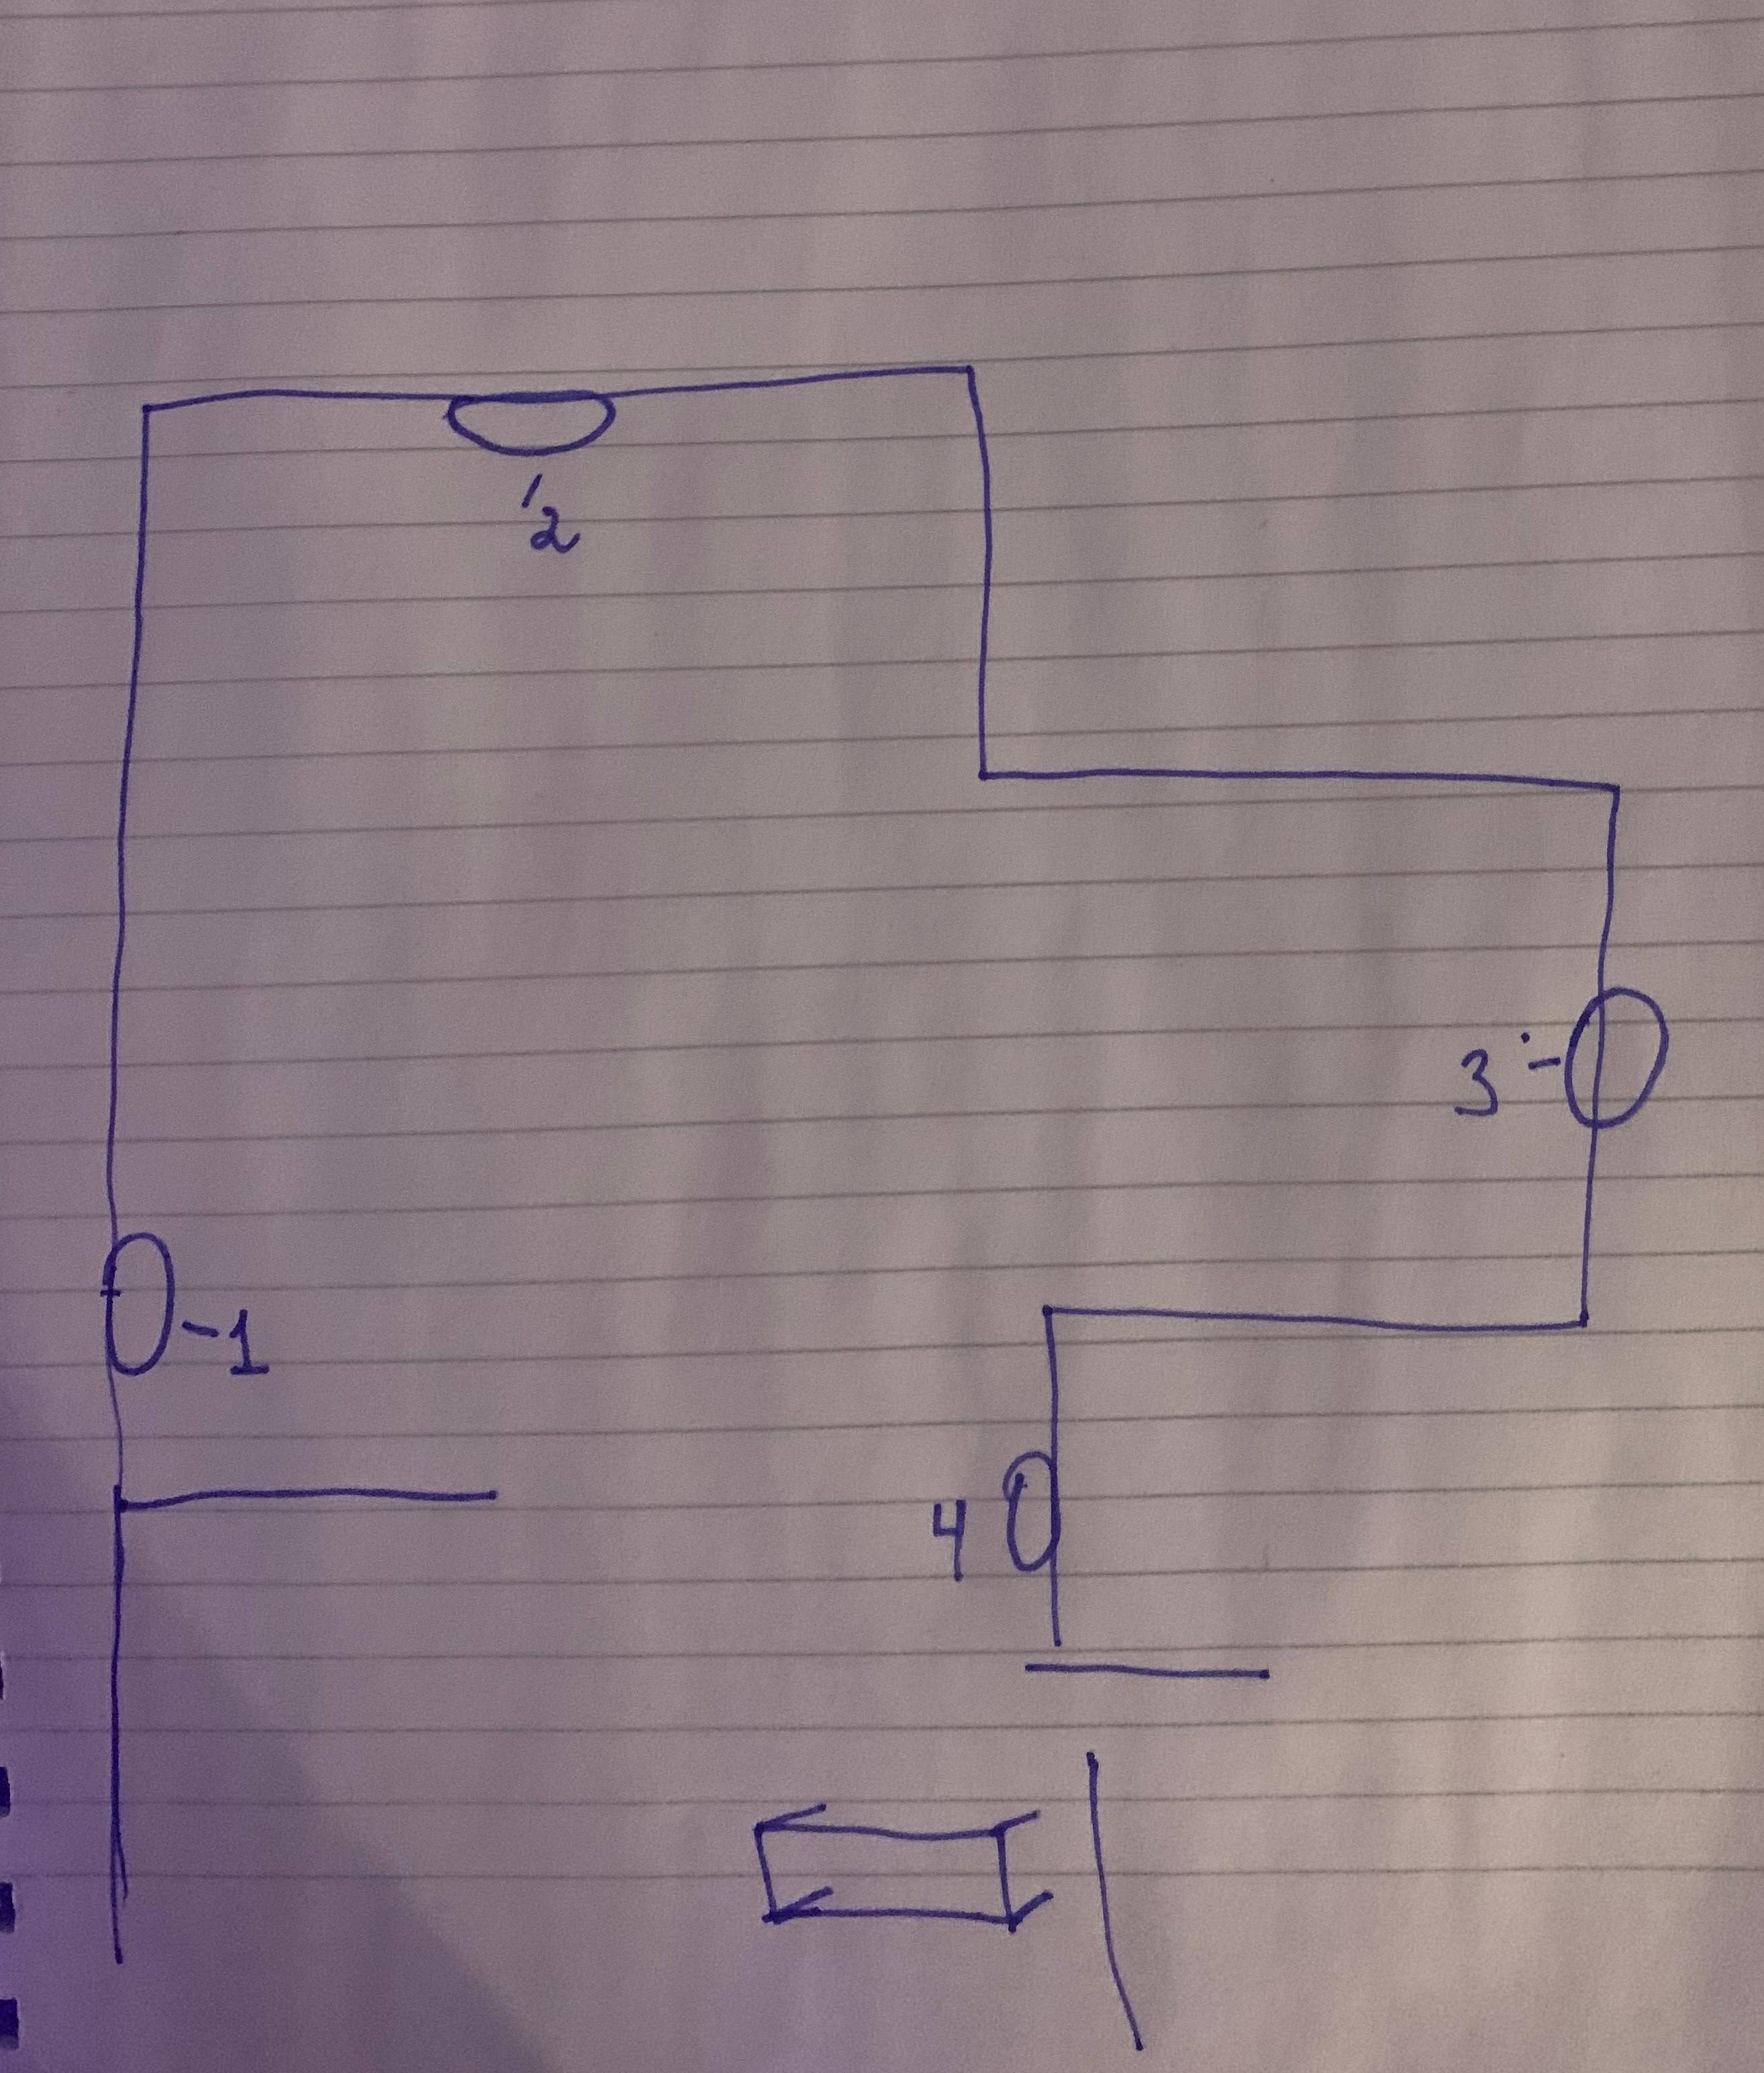 2
3
-1
4